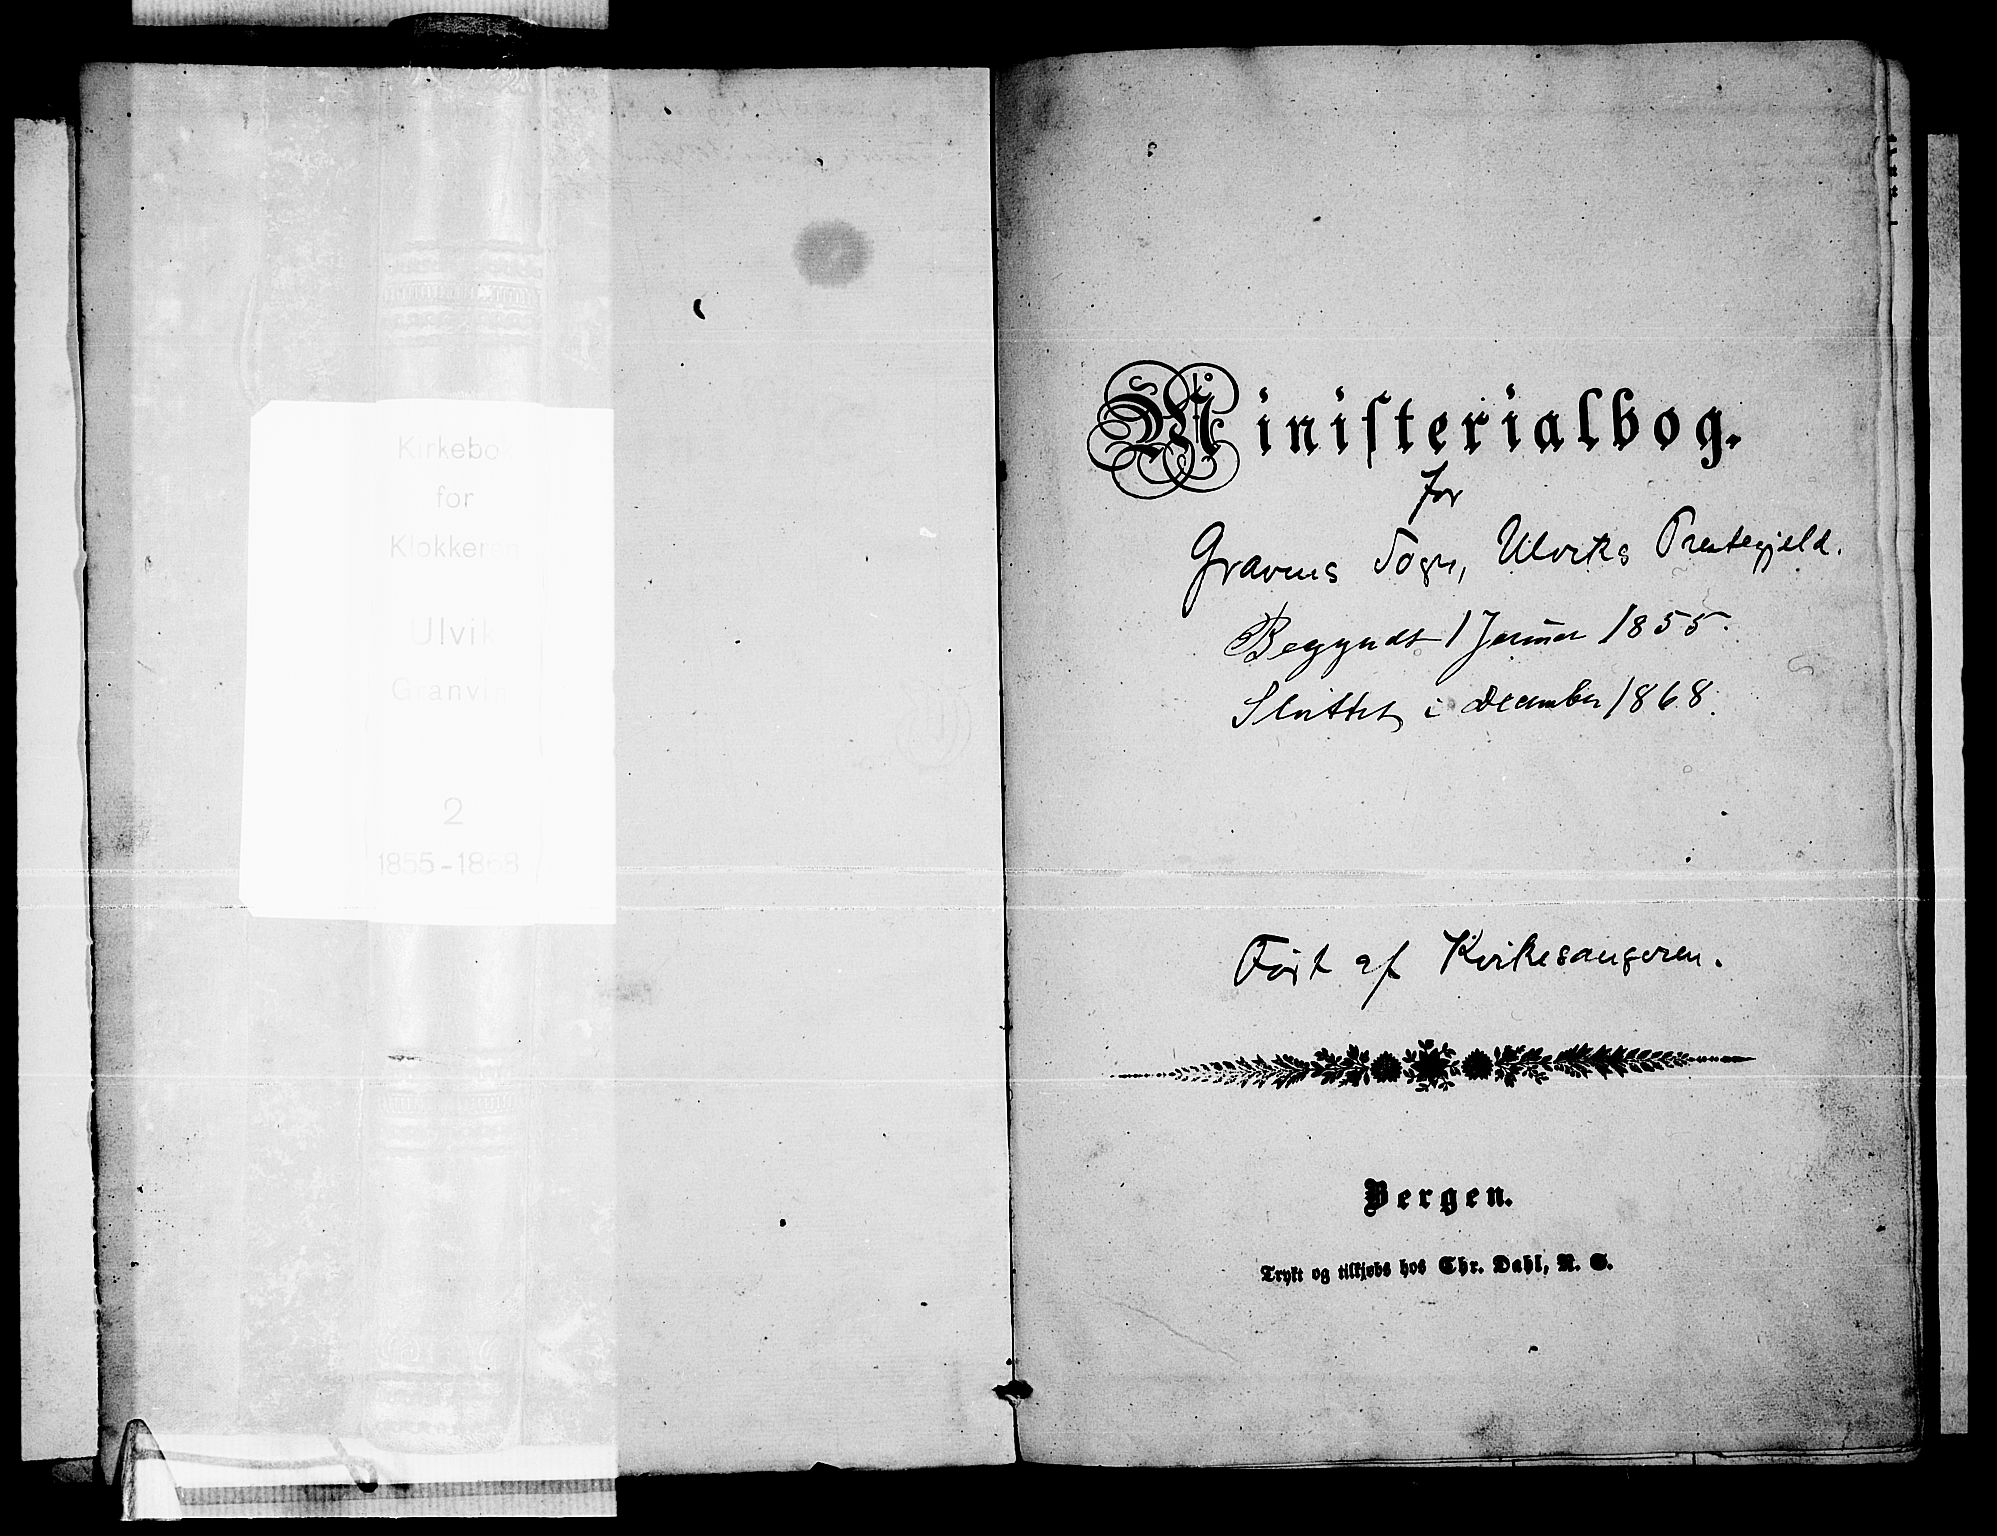 Kirkebok
for
Klokkeren
Ulvik
Granvin
2
1855-1868
Ministerialbog.
for
Gravens Sogn, Ulviks Prestegjeld.
Begyndt 1 Januar 1855.
Sluttet i December 1868.
Ført af Kirkesangeren.
Bergen.
Trykt og tilkjøbs hos Chr. Dahl, R. S.